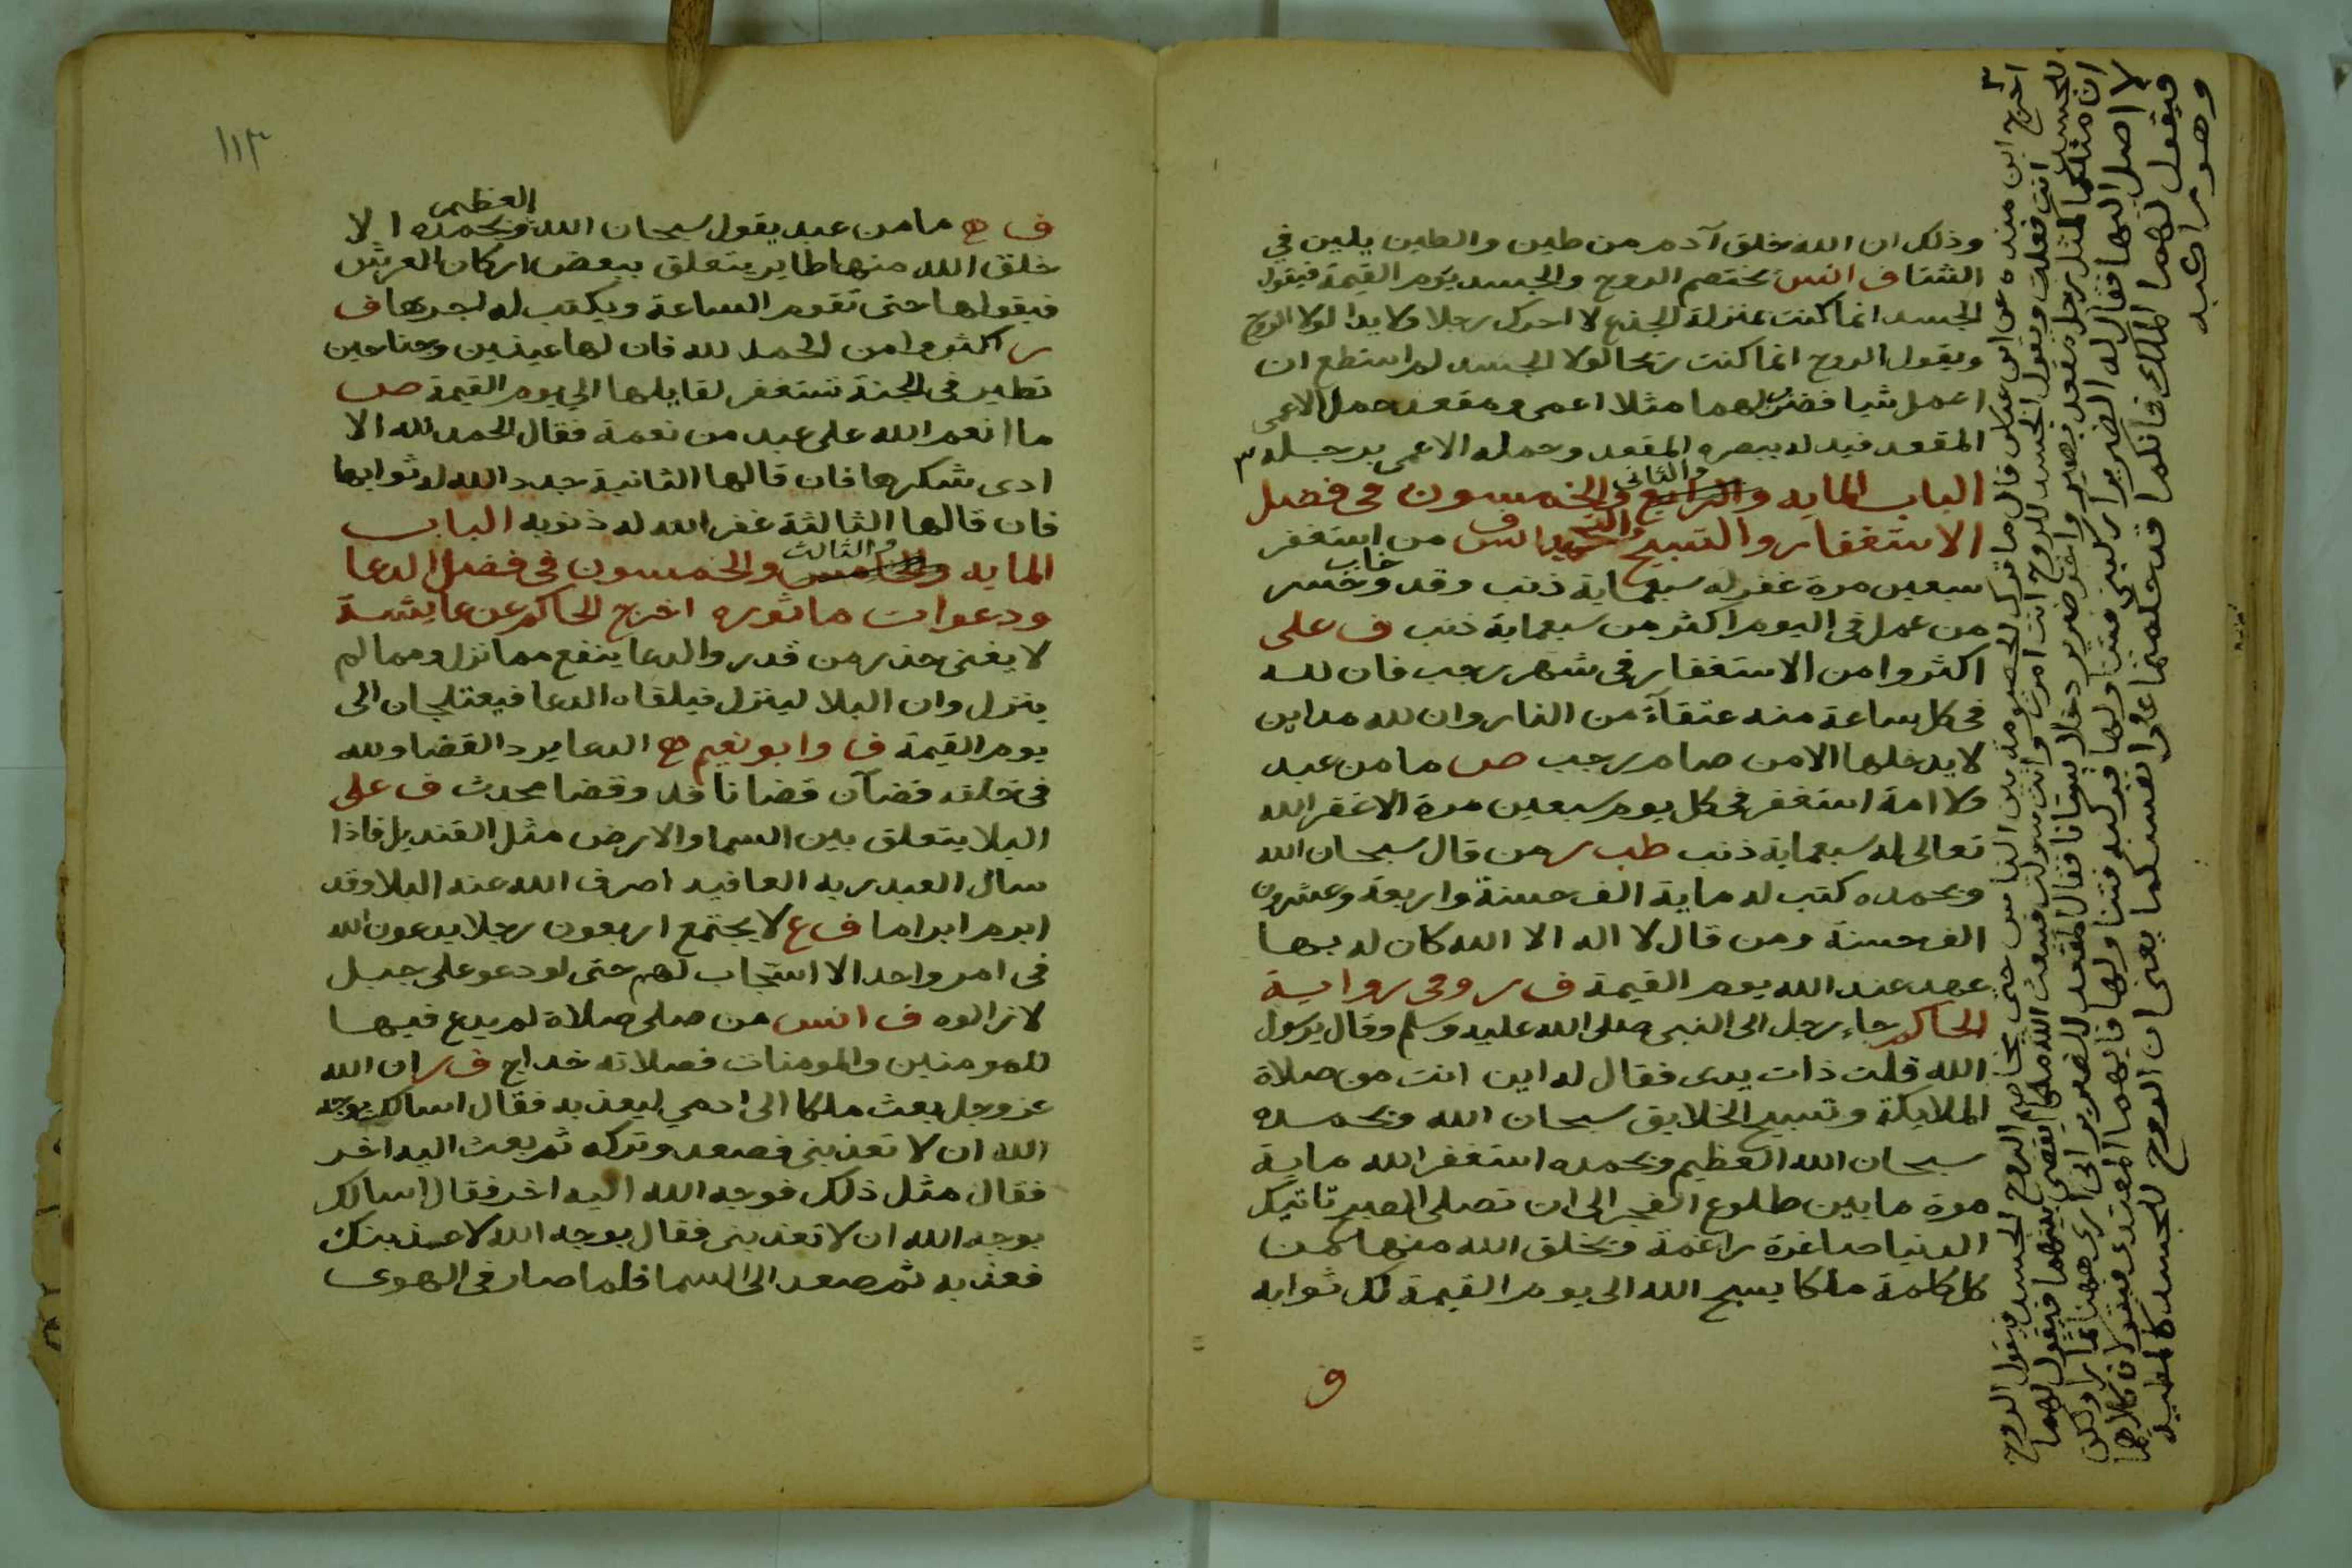 وذلك ان الله خلق آدم من طين والطين يلين في
الشتا ف انس يختصم الروح والجسد يوم القيمة فيقول
الجسد انما كنت بمنزلة الجذع لا احرك رجلا ولا يدا لولا الروح
ويقول الروح انما كنت ريحا لولا الجسد لم استطع ان
اعمل شيا فضرب لهما مثلا اعمى ومقعد حمل الاعمى
المقعد فيدله ببصره المقعد وحمله الاعمى برجله ٣
والثانى
الباب المايه والرابع والخمسون فى فضل
الاستغفار والتسبيح والتحميد انس ف من استغفر
سبعين مرة غفر له سبعماية ذنب وقد خاب وخسر
من عمل فى اليوم اكثر من سبعماية ذنب ف على
اكثروا من الاستغفار فى شهر رجب فان لله
فى كل ساعة منه عتقآء من النار وان لله مداين
لا يدخلها الا من صام رجب ص ما من عبد
ولا امة استغفر فى كل يوم سبعين مرة الا غفر الله
تعالى له سبعماية ذنب طب ر من قال سبحان الله
وبحمده كتب له ماية الف حسنة واربعة وعشرون
الف حسنة ومن قال لا اله الا الله كان له بها
عهد عند الله يوم القيمة ف ر وفى رواية
الحاكم جاء رجل الى النبى صلى الله عليه وسلم وقال يرسول
الله قلت ذات يدى فقال له اين انت من صلاة
الملايكة وتسبيح الخلايق سبحان الله وبحمده
سبحان الله العظيم وبحمده استغفر الله ماية
مرة ما بين طلوع الفجر الى ان تصلى الصبح تاتيك
الدنيا صاغرة راغمة ويخلق الله منها من
كل كلمة ملكا يسبح الله الى يوم القيمة لك ثوابه
ف
٣
اخرج ابن منده عن ابن عباس قال ما تزال الخصومة بين الناس حتى يخاصم الروح الجسد فيقول الروح
للجسد انت فعلت ويقول الجسد للروح انت امرت وانت سولت فيبعث الله ملكا يقضى بينهما فيقول لهما
ان مثلكما كمثل رجل مقعد بصير واخر ضرير دخلا بستانا فقال المقعد للضرير انى ارى ههنا ثمارا ولكن
لا اصل اليها فقال له الضرير اركبنى فتناولها فركبه فتناولها فايهما المعتدى فيقولان كلاهما
فيقول لهما الملك فانكما قد حكمتما على انفسكما يعنى ان الروح للجسد كالمطية
وهو راكبه
١١٣
العظيم
ف ح ما من عبد يقول سبحان الله وبحمده الا
خلق الله منها طاير يتعلق ببعض اركان العرش
فيقولها حتى تقوم الساعة ويكتب له اجرها ف
ر اكثروا من الحمد لله فان لها عينين وجناحين
تطير فى الجنة تستغفر لقايلها الى يوم القيمة ص
ما انعم الله على عبد من نعمة فقال الحمد لله الا
ادى شكرها فان قالها الثانية جدد الله له ثوابها
فان قالها الثالثة غفر الله له ذنوبه الباب
والثالث
المايه والخامس والخمسون فى فضل الدعا
ودعوات ماثوره اخرج الحاكم عن عايشة
لا يغنى حذر من قدر والدعا ينفع مما نزل ومما لم
ينزل وان البلا لينزل فيلقاه الدعا فيعتلجان الى
يوم القيمة ف وابو نعيم ح الدعا يرد القضا ولله
فى خلقه قضآن قضا نافد وقضا محدث ف على
البلا يتعلق بين السما والارض مثل القنديل فاذا
سال العبد ربه العافيه اصرف الله عنه البلا وقد
ابرم ابراما ف ع لا يجتمع اربعون رجلا يدعون الله
فى امر واحد الا استجاب لهم حتى لو دعو على جبل
لازالوه ف انس من صلى صلاة لم يدع فيها
للمومنين والمومنات فصلاته خداج ف ر ان الله
عز وجل بعث ملكا الى ادمى ليعذبه فقال اسالك بوجه
الله ان لا تعذبنى فصعد وتركه ثم بعث اليه اخر
فقال مثل ذلك فوجه الله اليه اخر فقال اسالك
بوجه الله ان لا تعذبنى فقال بوجه الله لاعذبنك
فعذبه ثم صعد الى السما فلما صار فى الهوى